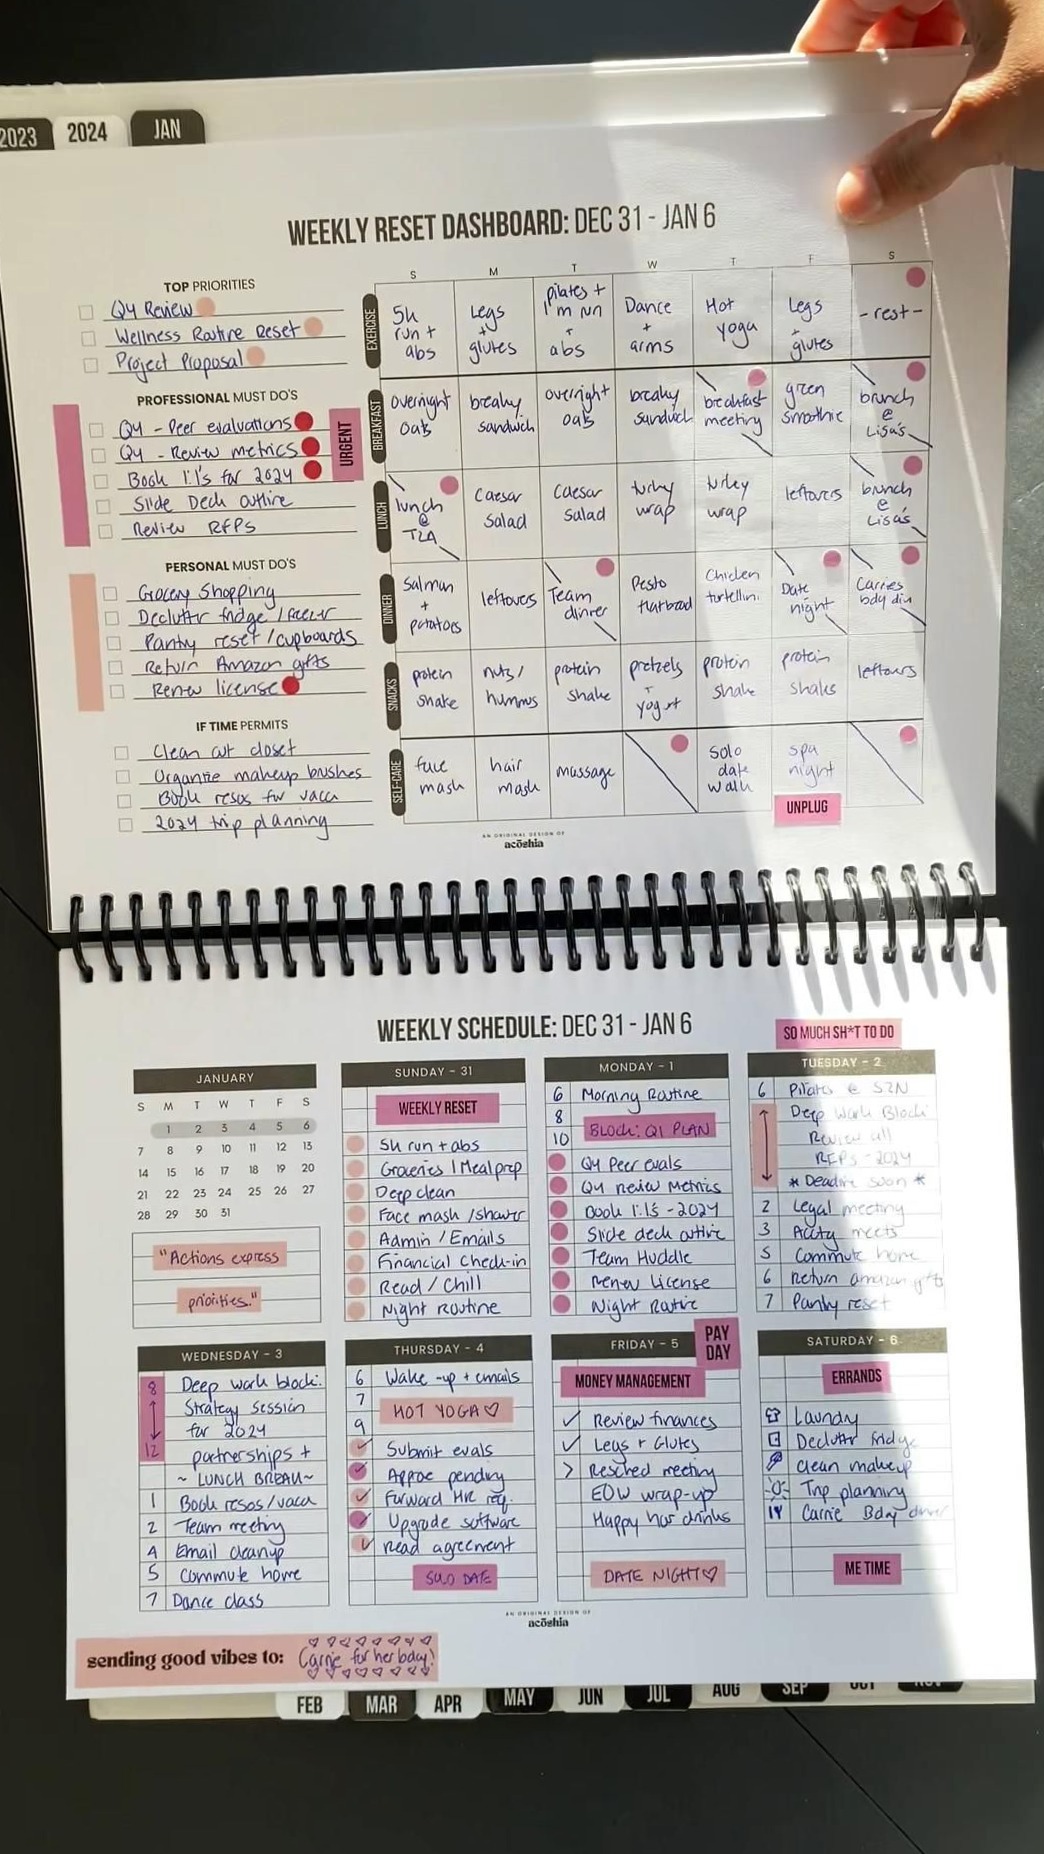 2023
2024
JAN
WEEKLY RESET DASHBOARD: DEC 31 - JAN 6
TOP PRIORITIES
Q4 Review
Wellness Routine Reset
Project Proposal
PROFESSIONAL MUST DO'S
Q4 - Peer evaluations
Q4 - Review metrics
Book 1:1's for 2024
Slide Deck outline
Review RFPS
URGENT
PERSONAL MUST DO'S
Grocery Shopping
Declutter fridge / freezer
Pantry reset / cupboards
Return Amazon gifts
Renew license
IF TIME PERMITS
Clean out closet
Organize makeup brushes
Book resos for vaca
2024 trip planning
S M T W T F S
EXERCISE
5k run + abs
Legs + glutes
pilates + 1m run + abs
Dance + arms
Hot yoga
Legs + glutes
- rest -
BREAKFAST
overnight oats
breaky sandwich
overnight oats
breaky sandwich
breakfast meeting
green smoothie
brunch @ Lisa's
LUNCH
lunch @
Caesar salad
Caesar salad
turkey wrap
turkey wrap
leftovers
brunch @ Lisa's
DINNER
Salmon + potatoes
leftovers
Team dinner
Pesto flatbread
Chicken tortellini
Date night
Carries bday din
SNACKS
protein shake
nuts / hummus
protein shake
pretzels + yogurt
protein shake
protein shake
leftovers
SELF-CARE
face mask
hair mask
massage
solo date walk
spa night
UNPLUG
AN ORIGINAL DESIGN OF
acōshia
WEEKLY SCHEDULE: DEC 31 - JAN 6
SO MUCH SH*T TO DO
JANUARY
S M T W T F S
1 2 3 4 5 6
7 8 9 10 11 12 13
14 15 16 17 18 19 20
21 22 23 24 25 26 27
28 29 30 31
"Actions express
priorities."
SUNDAY - 31
WEEKLY RESET
5k run + abs
Groceries / Meal prep
Deep clean
Face mask / shower
Admin / Emails
Financial Check-in
Read / Chill
Night Routine
MONDAY - 1
6 Morning Routine
8
10 BLOCK: Q1 PLAN
Q4 Peer evals
Q4 Review Metrics
Book 1:1's - 2024
Slide deck outline
Team Huddle
Renew License
Night Routine
TUESDAY - 2
6 Pilates @
Deep Work Block:
Review all
RFPS - 2024
* Deadline soon *
2 Legal meeting
3 meets
5 Commute home
6 Return amazon gifts
7 Pantry reset
WEDNESDAY - 3
8 Deep work block:
Strategy session
for 2024
12 partnerships +
~ LUNCH BREAK ~
1 Book resos / vaca
2 Team meeting
4 Email cleanup
5 Commute home
7 Dance class
THURSDAY - 4
6 Wake-up + emails
7
HOT YOGA
9
Submit evals
pending
Forward HR req.
Upgrade software
Read agreement
SOLO DATE
FRIDAY - 5
PAY DAY
MONEY MANAGEMENT
Review finances
Legs + Glutes
Resched meeting
EOW wrap-up
Happy hour drinks
DATE NIGHT
SATURDAY - 6
ERRANDS
Laundry
Declutter fridge
clean makeup
Trip planning
Carrie Bday dinner
ME TIME
AN ORIGINAL DESIGN OF
acōshia
sending good vibes to: Carrie for her bday!
FEB MAR APR MAY JUN JUL AUG SEP OCT NOV